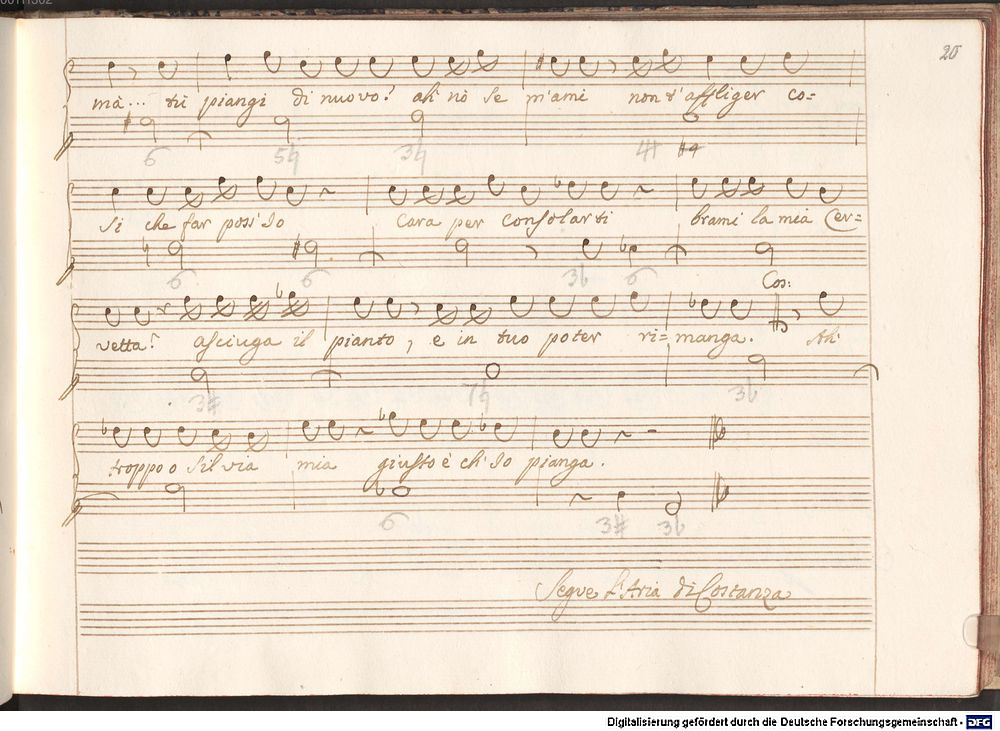 20
mà... tù piangi di nuovo? ah nò se m'ami non t'affliger co=
6 5♮ 3♮ 4♯ ♯4
Sì che far poss'io Cara per consolarti brami la mia Cer=
6 6 3♭ 6
Cos:
vetta? asciuga il pianto, e in tuo poter ri=manga. Ah
3♯ 7♮ 3♭
troppo o Silvia mia giusto è ch'io pianga.
6 3♯ 3♭
Segue l'Aria di Costanza
Digitalisierung gefördert durch die Deutsche Forschungsgemeinschaft - DFG